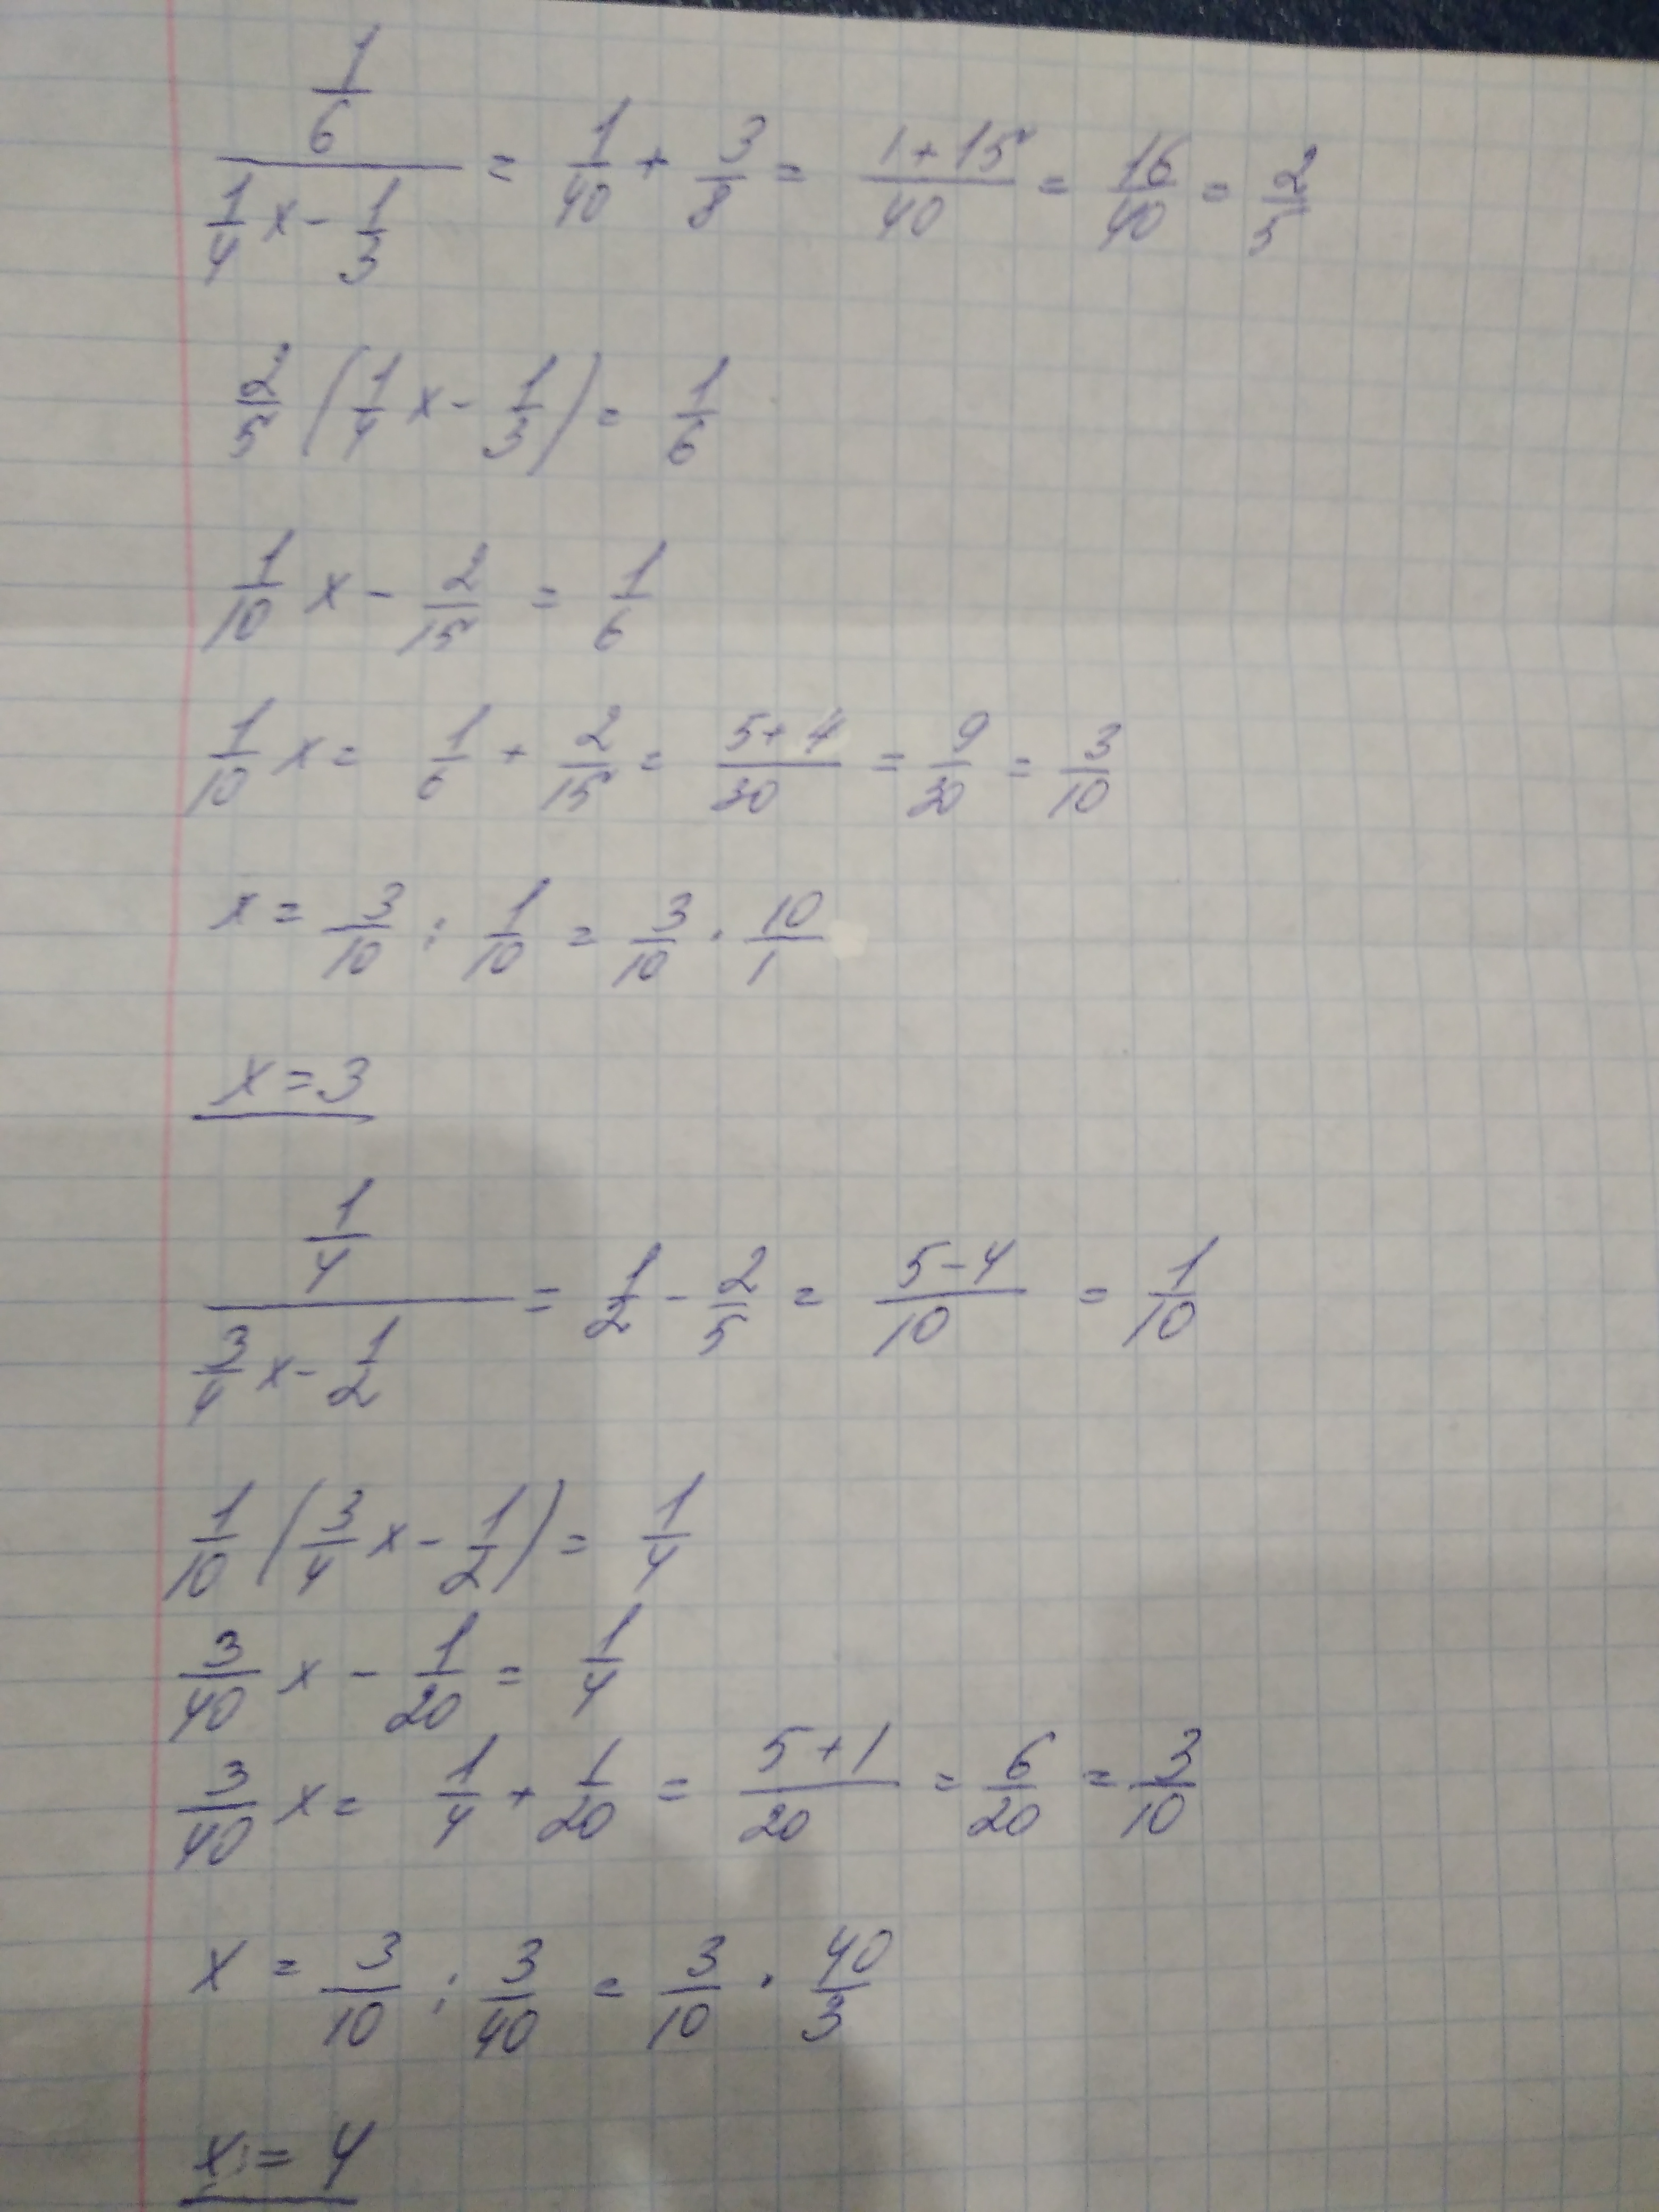 (1/6)/(1/4 x - 1/3) = 1/40 + 3/8 = (1+15)/40 = 16/40 = 2/5
2/5 (1/4 x - 1/3) = 1/6
1/10 x - 2/15 = 1/6
1/10 x = 1/6 + 2/15 = (5+4)/30 = 9/30 = 3/10
x = 3/10 : 1/10 = 3/10 · 10/1
x = 3
(1/4)/(3/4 x - 1/2) = 1/2 - 2/5 = (5-4)/10 = 1/10
1/10 (3/4 x - 1/2) = 1/4
3/40 x - 1/20 = 1/4
3/40 x = 1/4 + 1/20 = (5+1)/20 = 6/20 = 3/10
x = 3/10 : 3/40 = 3/10 · 40/3
x = 4